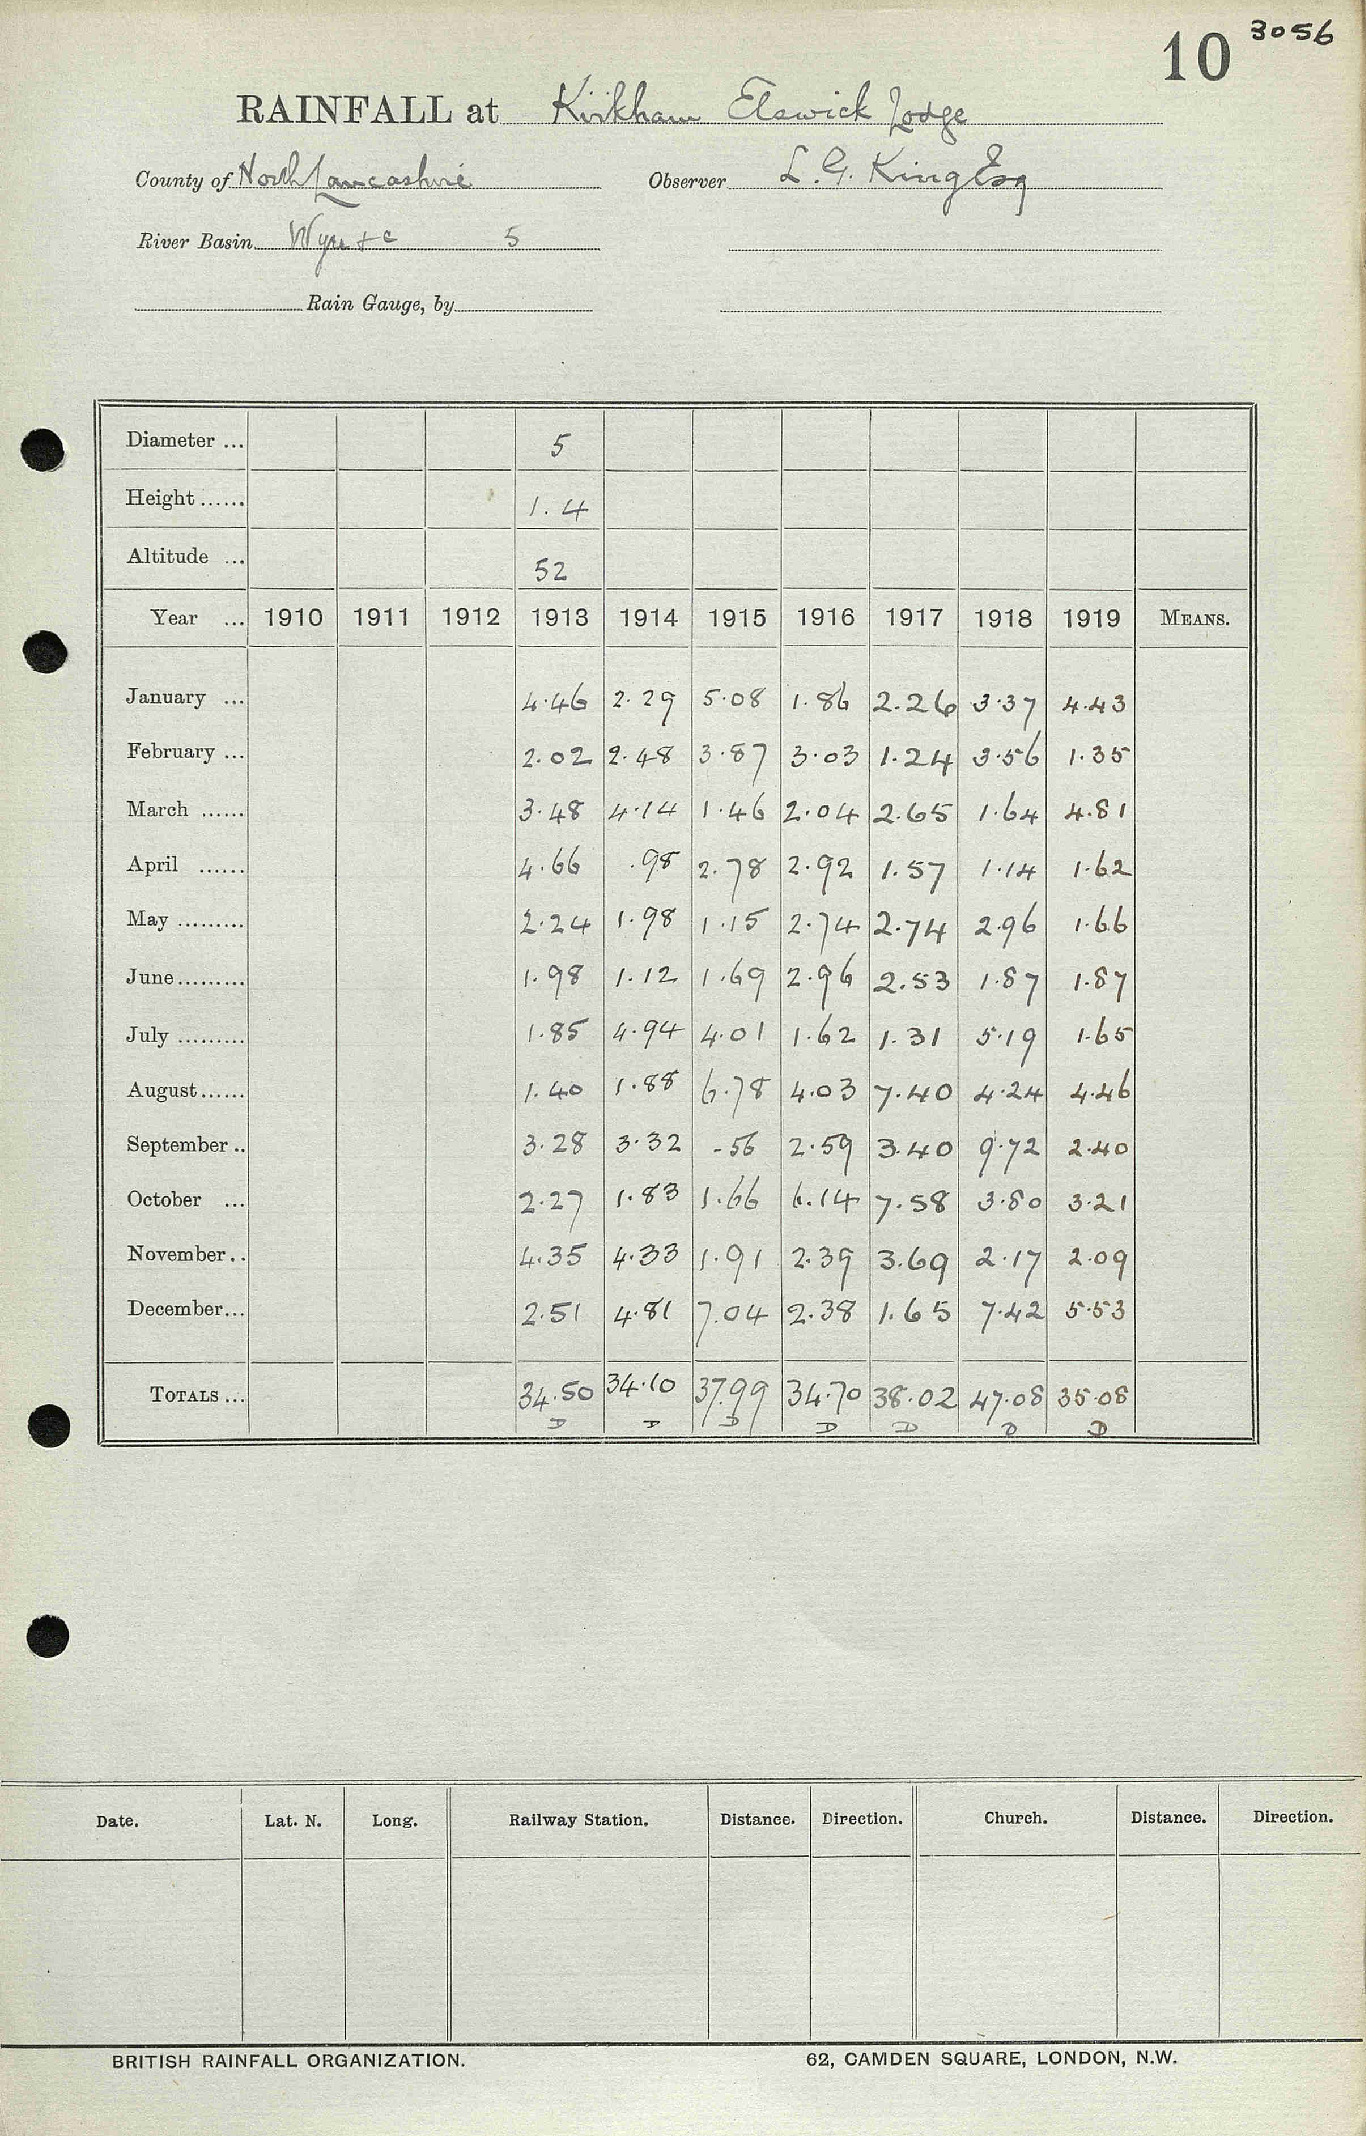 10 3056
RAINFALL at Kirkham Elswick Lodge
County of North Lancashire Observer L. G. King Esq
River Basin Wyre &c 5
Rain Gauge, by
Diameter ... 5
Height ...... 1.4
Altitude ... 52
Year ... 1910 1911 1912 1913 1914 1915 1916 1917 1918 1919 MEANS.
January ... 4.46 2.29 5.08 1.86 2.26 3.37 4.43
February ... 2.02 2.48 3.87 3.03 1.24 3.56 1.35
March ...... 3.48 4.14 1.46 2.04 2.65 1.64 4.81
April ...... 4.66 .98 2.78 2.92 1.57 1.14 1.62
May ......... 2.24 1.98 1.15 2.74 2.74 2.96 1.66
June ......... 1.98 1.12 1.69 2.96 2.53 1.87 1.87
July ......... 1.85 4.94 4.01 1.62 1.31 5.19 1.65
August ...... 1.40 1.88 6.78 4.03 7.40 4.24 4.46
September .. 3.28 3.32 .56 2.59 3.40 9.72 2.40
October ... 2.27 1.83 1.66 6.14 7.58 3.80 3.21
November .. 4.35 4.33 1.91 2.39 3.69 2.17 2.09
December ... 2.51 4.81 7.04 2.38 1.65 7.42 5.53
TOTALS ... 34.50 34.10 37.99 34.70 38.02 47.08 35.08
D D D D D D D
Date. Lat. N. Long. Railway Station. Distance. Direction. Church. Distance. Direction.
BRITISH RAINFALL ORGANIZATION. 62, CAMDEN SQUARE, LONDON, N.W.